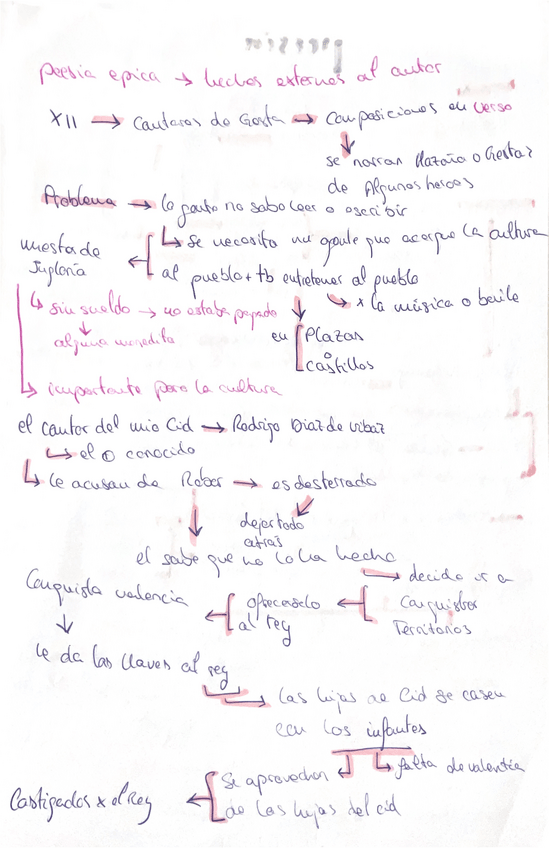 poesia epica → hechos externos al autor
XII → Cantares de Gesta → Composiciones en verso
se narran Hazaña o Gestas
de Algunos heroes
Problema → la gente no sabe leer o escribir
↳ se necesita una gente que acerque la cultura
al pueblo + tb entretener al pueblo
mester de
Juglaría
↳ x la música o baile
en Plazas
o
castillos
↳ sin sueldo → no estaba pagado
alguna monedita
↳ importante para la cultura
el cantar del mio Cid → Rodrigo Diaz de vibar
↳ el conocido
↳ le acusan de Robar → es desterrado
dejar todo
atrás
el sabe que no lo ha hecho
→ decide ir a
Conquistar
Territorios
ofrecerselo
al rey
Conquista valencia
le da las llaves al rey
→ las hijas de Cid se casen
con los infantes
↳ falta de valentía
Se aprovechan
de las hijas del cid
Castigados x el Rey